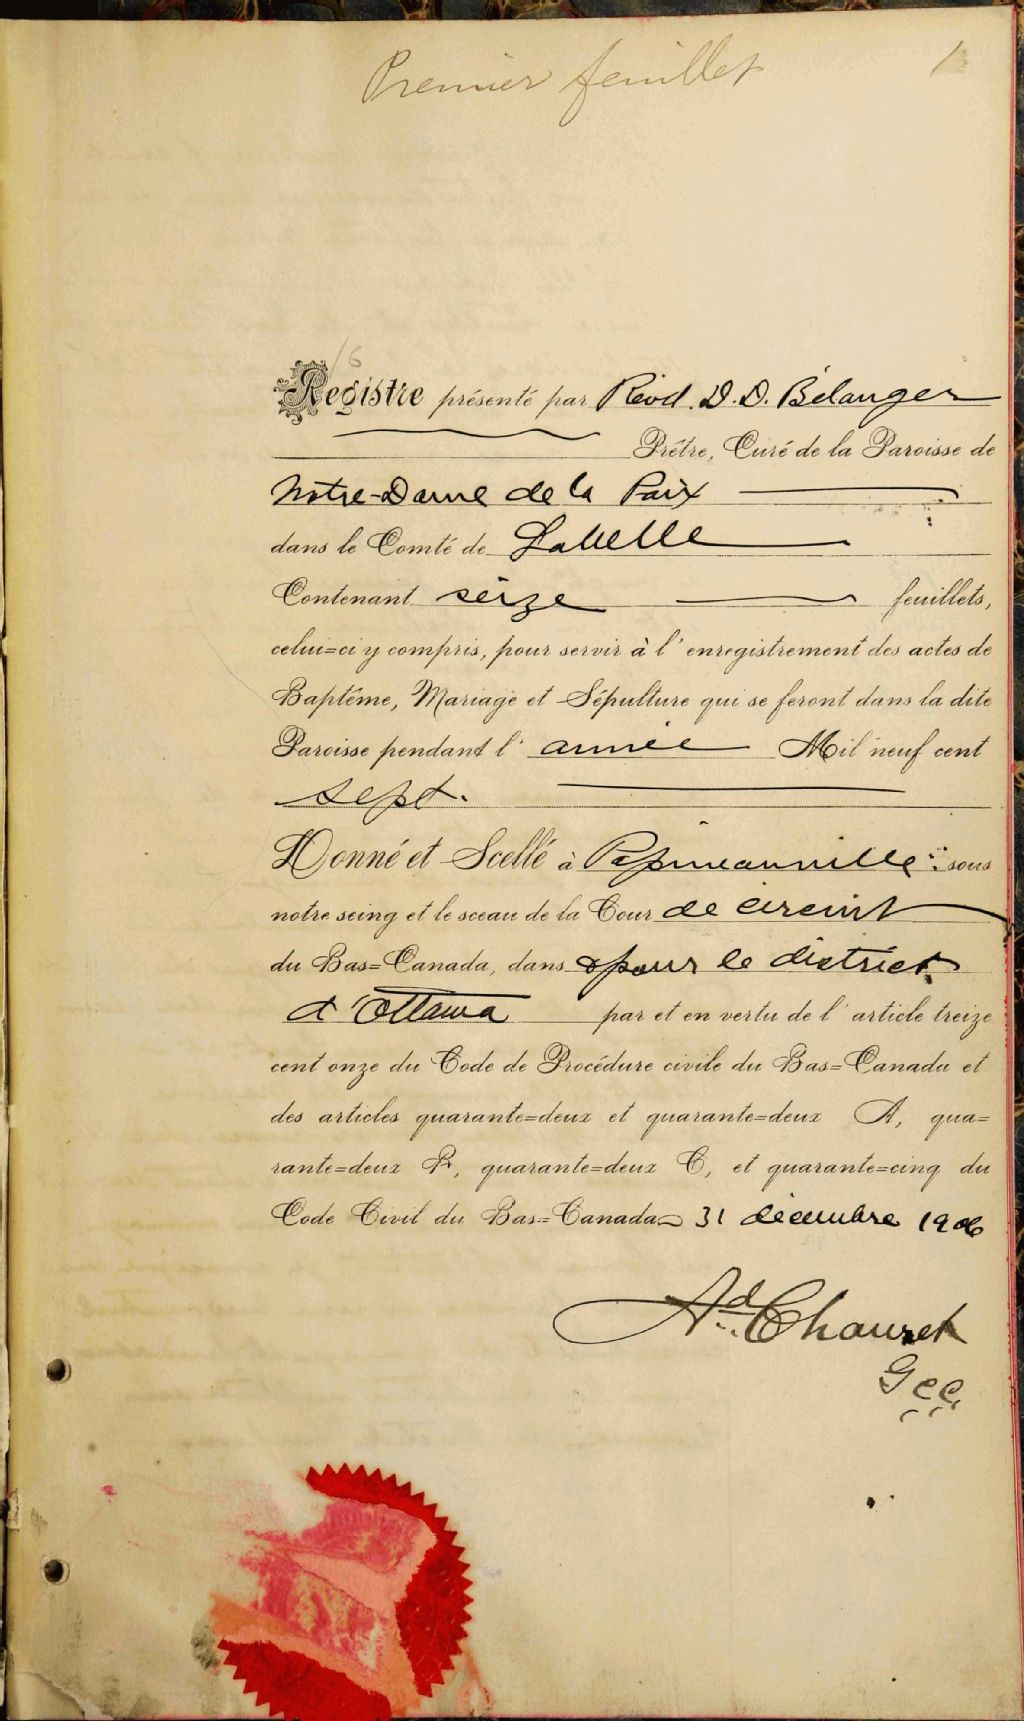 Premier feuillet 1
16
Registre présenté par Révd. D. D. Bélanger
Prêtre, Curé de la Paroisse de
Notre-Dame de la Paix
dans le Comté de Labelle
Contenant seize feuillets,
celui=ci y compris, pour servir à l'enregistrement des actes de
Baptême, Mariage et Sépulture qui se feront dans la dite
Paroisse pendant l'année Mil neuf cent
sept.
Donné et Scellé à Papineauville sous
notre seing et le sceau de la Cour de circuit
du Bas=Canada, dans & pour le district
d'Ottawa par et en vertu de l'article treize
cent onze du Code de Procédure civile du Bas=Canada et
des articles quarante=deux et quarante=deux A, qua=
rante=deux B, quarante=deux C, et quarante=cinq du
Code Civil du Bas=Canada 31 décembre 1906
Ad. Chauret
G c c,